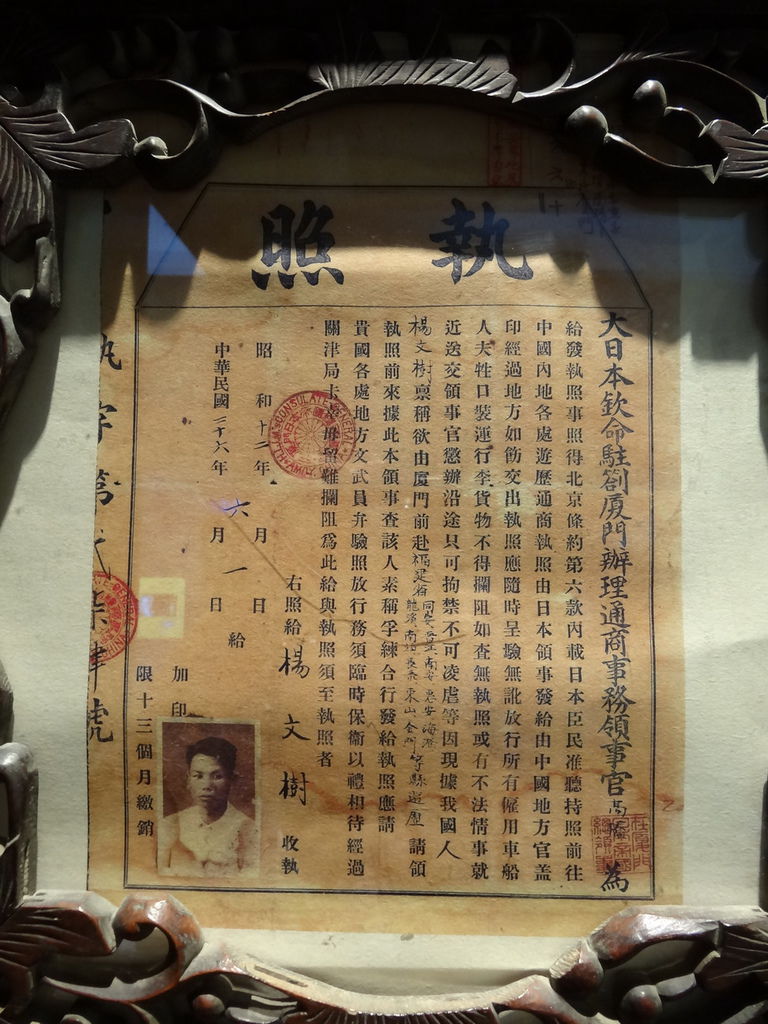 執照
大日本欽命駐劄厦門辦理通商事務領事官高 為
給發執照事照得北京條約第六款內載日本臣民准聽持照前往
中國內地各處遊歷通商執照由日本領事發給由中國地方官蓋
印經過地方如飭交出執照應隨時呈驗無訛放行所有僱用車船
人夫牲口裝運行李貨物不得攔阻如查無執照或有不法情事就
近送交領事官懲辦沿途只可拘禁不可凌虐等因現據我國人
楊文樹禀稱欲由厦門前赴福建省同安晋江南安惠安海澄龍溪南靖長泰東山金門等縣遊歷請領
執照前來據此本領事查該人素稱孚練合行發給執照應請
貴國各處地方文武員弁驗照放行務須臨時保衛以禮相待經過
關津局卡幸毋留難攔阻為此給與執照須至執照者
右照給楊文樹收執
昭和十二年 月 日
中華民國二十六年六月一日給
加印
限十三個月繳銷
執字第弍柒肆號